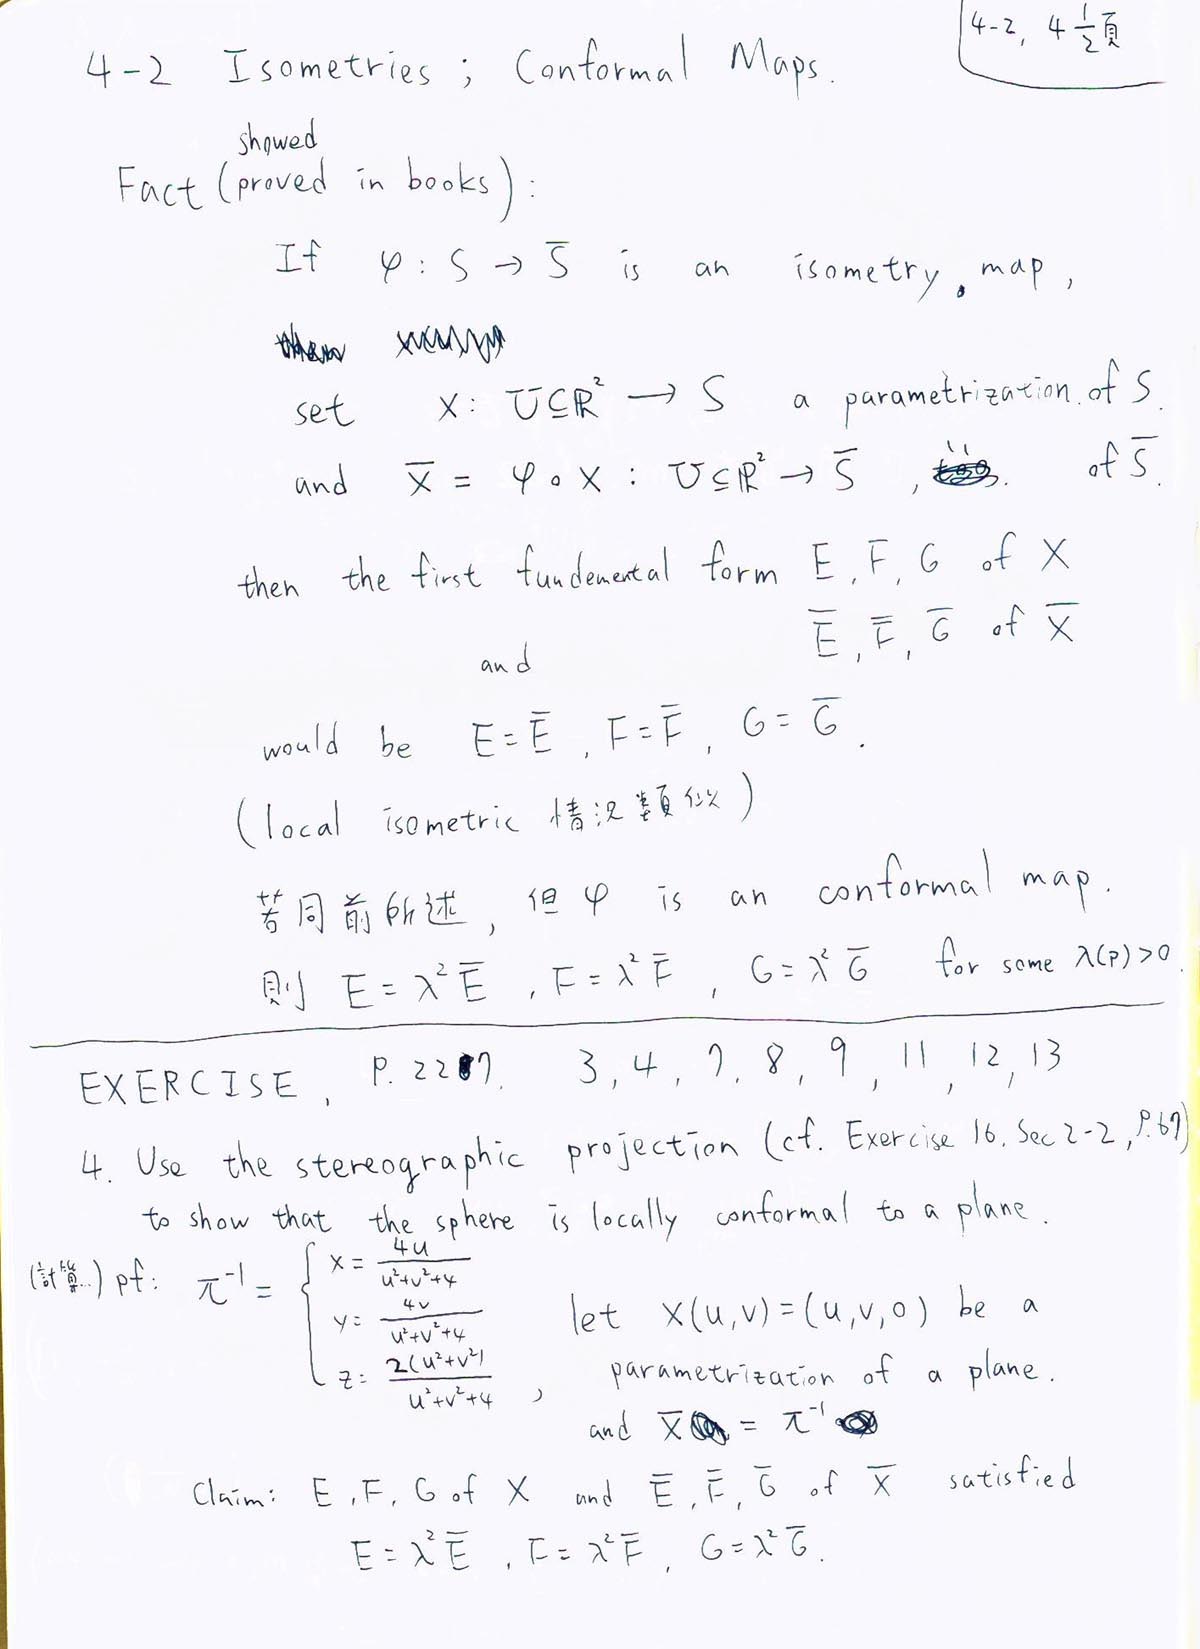 4-2, 4 1/2 頁
4-2 Isometries ; Conformal Maps.
showed
Fact (proved in books) :
If φ : S → S̅ is an isometry. map ,
set X : U⊆ℝ² → S a parametrization of S.
and X̅ = φ∘X : U⊆ℝ² → S̅ , '' of S̅.
then the first fundemental form E, F, G of X
E̅, F̅, G̅ of X̅
and
would be E = E̅ , F = F̅ , G = G̅ .
(local isometric 情況類似)
若同前所述, 但 φ is an conformal map.
則 E = λ² E̅ , F = λ² F̅ , G = λ² G̅ for some λ(p) > 0
EXERCISE, P. 227. 3, 4, 7, 8, 9, 11, 12, 13
4. Use the stereographic projection (cf. Exercise 16, Sec 2-2, P.67)
to show that the sphere is locally conformal to a plane.
(計算...) pf: π⁻¹ = { x = 4u / (u²+v²+4)
y = 4v / (u²+v²+4)
z = 2(u²+v²) / (u²+v²+4) ,
let X(u,v) = (u,v,0) be a
parametrization of a plane.
and X̅ = π⁻¹
Claim: E, F, G of X and E̅, F̅, G̅ of X̅ satisfied
E = λ² E̅ , F = λ² F̅ , G = λ² G̅.